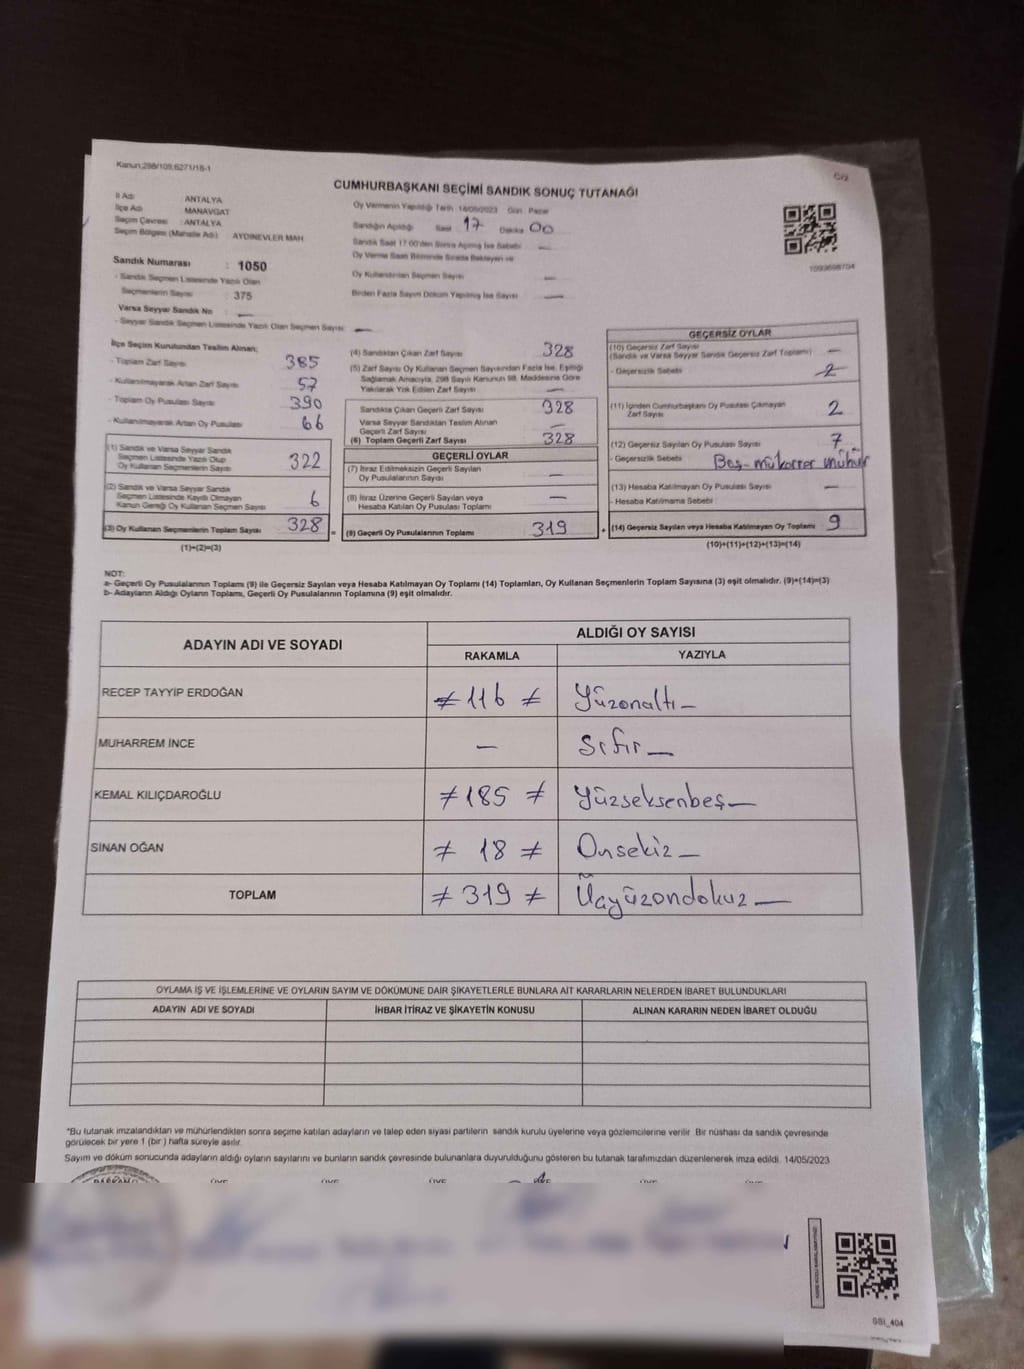 Kanun;298/109;6271/18-1
C/2
CUMHURBAŞKANI SEÇİMİ SANDIK SONUÇ TUTANAĞI
İl Adı ANTALYA
İlçe Adı MANAVGAT
Seçim Çevresi : ANTALYA
Seçim Bölgesi (Mahalle Adı) AYDINEVLER MAH
Sandık Numarası : 1050
- Sandık Seçmen Listesinde Yazılı Olan
Seçmenlerin Sayısı : 375
Varsa Seyyar Sandık No : —
- Seyyar Sandık Seçmen Listesinde Yazılı Olan Seçmen Sayısı: —
Oy Vermenin Yapıldığı Tarih 14/05/2023 Gün Pazar
Sandığın Açıldığı Saat 17 Dakika 00
Sandık Saat 17.00'den Sonra Açılmış İse Sebebi —
Oy Verme Saati Bitiminde Sırada Bekleyen ve
Oy Kullandırılan Seçmen Sayısı —
Birden Fazla Sayım Döküm Yapılmış İse Sayısı —
İlçe Seçim Kurulundan Teslim Alınan;
- Toplam Zarf Sayısı 385
- Kullanılmayarak Artan Zarf Sayısı 57
- Toplam Oy Pusulası Sayısı 390
- Kullanılmayarak Artan Oy Pusulası 66
(1) Sandık ve Varsa Seyyar Sandık
Seçmen Listesinde Yazılı Olup
Oy Kullanan Seçmenlerin Sayısı 322
(2) Sandık ve Varsa Seyyar Sandık
Seçmen Listesinde Kayıtlı Olmayan
Kanun Gereği Oy Kullanan Seçmen Sayısı 6
(3) Oy Kullanan Seçmenlerin Toplam Sayısı 328
(1)+(2)=(3)
(4) Sandıktan Çıkan Zarf Sayısı 328
(5) Zarf Sayısı Oy Kullanan Seçmen Sayısından Fazla İse, Eşitliği
Sağlamak Amacıyla, 298 Sayılı Kanunun 98. Maddesine Göre
Yakılarak Yok Edilen Zarf Sayısı —
Sandıkta Çıkan Geçerli Zarf Sayısı 328
Varsa Seyyar Sandıktan Teslim Alınan
Geçerli Zarf Sayısı —
(6) Toplam Geçerli Zarf Sayısı 328
GEÇERLİ OYLAR
(7) İtiraz Edilmeksizin Geçerli Sayılan
Oy Pusulalarının Sayısı —
(8) İtiraz Üzerine Geçerli Sayılan veya
Hesaba Katılan Oy Pusulası Toplamı —
= (9) Geçerli Oy Pusulalarının Toplamı 319
GEÇERSİZ OYLAR
(10) Geçersiz Zarf Sayısı —
(Sandık ve Varsa Seyyar Sandık Geçersiz Zarf Toplamı)
- Geçersizlik Sebebi
(11) İçinden Cumhurbaşkanı Oy Pusulası Çıkmayan 2
Zarf Sayısı
(12) Geçersiz Sayılan Oy Pusulası Sayısı 7
- Geçersizlik Sebebi Boş-mükerrer mühür
(13) Hesaba Katılmayan Oy Pusulası Sayısı —
- Hesaba Katılmama Sebebi
+ (14) Geçersiz Sayılan veya Hesaba Katılmayan Oy Toplamı 9
(10)+(11)+(12)+(13)=(14)
NOT:
a- Geçerli Oy Pusulalarının Toplamı (9) ile Geçersiz Sayılan veya Hesaba Katılmayan Oy Toplamı (14) Toplamları, Oy Kullanan Seçmenlerin Toplam Sayısına (3) eşit olmalıdır. (9)+(14)=(3)
b- Adayların Aldığı Oyların Toplamı, Geçerli Oy Pusulalarının Toplamına (9) eşit olmalıdır.
ADAYIN ADI VE SOYADI
ALDIĞI OY SAYISI
RAKAMLA YAZIYLA
RECEP TAYYİP ERDOĞAN ≠ 116 ≠ Yüzonaltı —
MUHARREM İNCE — Sıfır —
KEMAL KILIÇDAROĞLU ≠ 185 ≠ Yüzseksenbeş —
SİNAN OĞAN ≠ 18 ≠ Onsekiz —
TOPLAM ≠ 319 ≠ Üçyüzondokuz —
OYLAMA İŞ VE İŞLEMLERİNE VE OYLARIN SAYIM VE DÖKÜMÜNE DAİR ŞİKAYETLERLE BUNLARA AİT KARARLARIN NELERDEN İBARET BULUNDUKLARI
ADAYIN ADI VE SOYADI İHBAR İTİRAZ VE ŞİKAYETİN KONUSU ALINAN KARARIN NEDEN İBARET OLDUĞU
*Bu tutanak imzalandıktan ve mühürlendikten sonra seçime katılan adayların ve talep eden siyasi partilerin sandık kurulu üyelerine veya gözlemcilerine verilir. Bir nüshası da sandık çevresinde
görülecek bir yere 1 (bir ) hafta süreyle asılır.
Sayım ve döküm sonucunda adayların aldığı oyların sayılarını ve bunların sandık çevresinde bulunanlara duyurulduğunu gösteren bu tutanak tarafımızdan düzenlenerek imza edildi. 14/05/2023